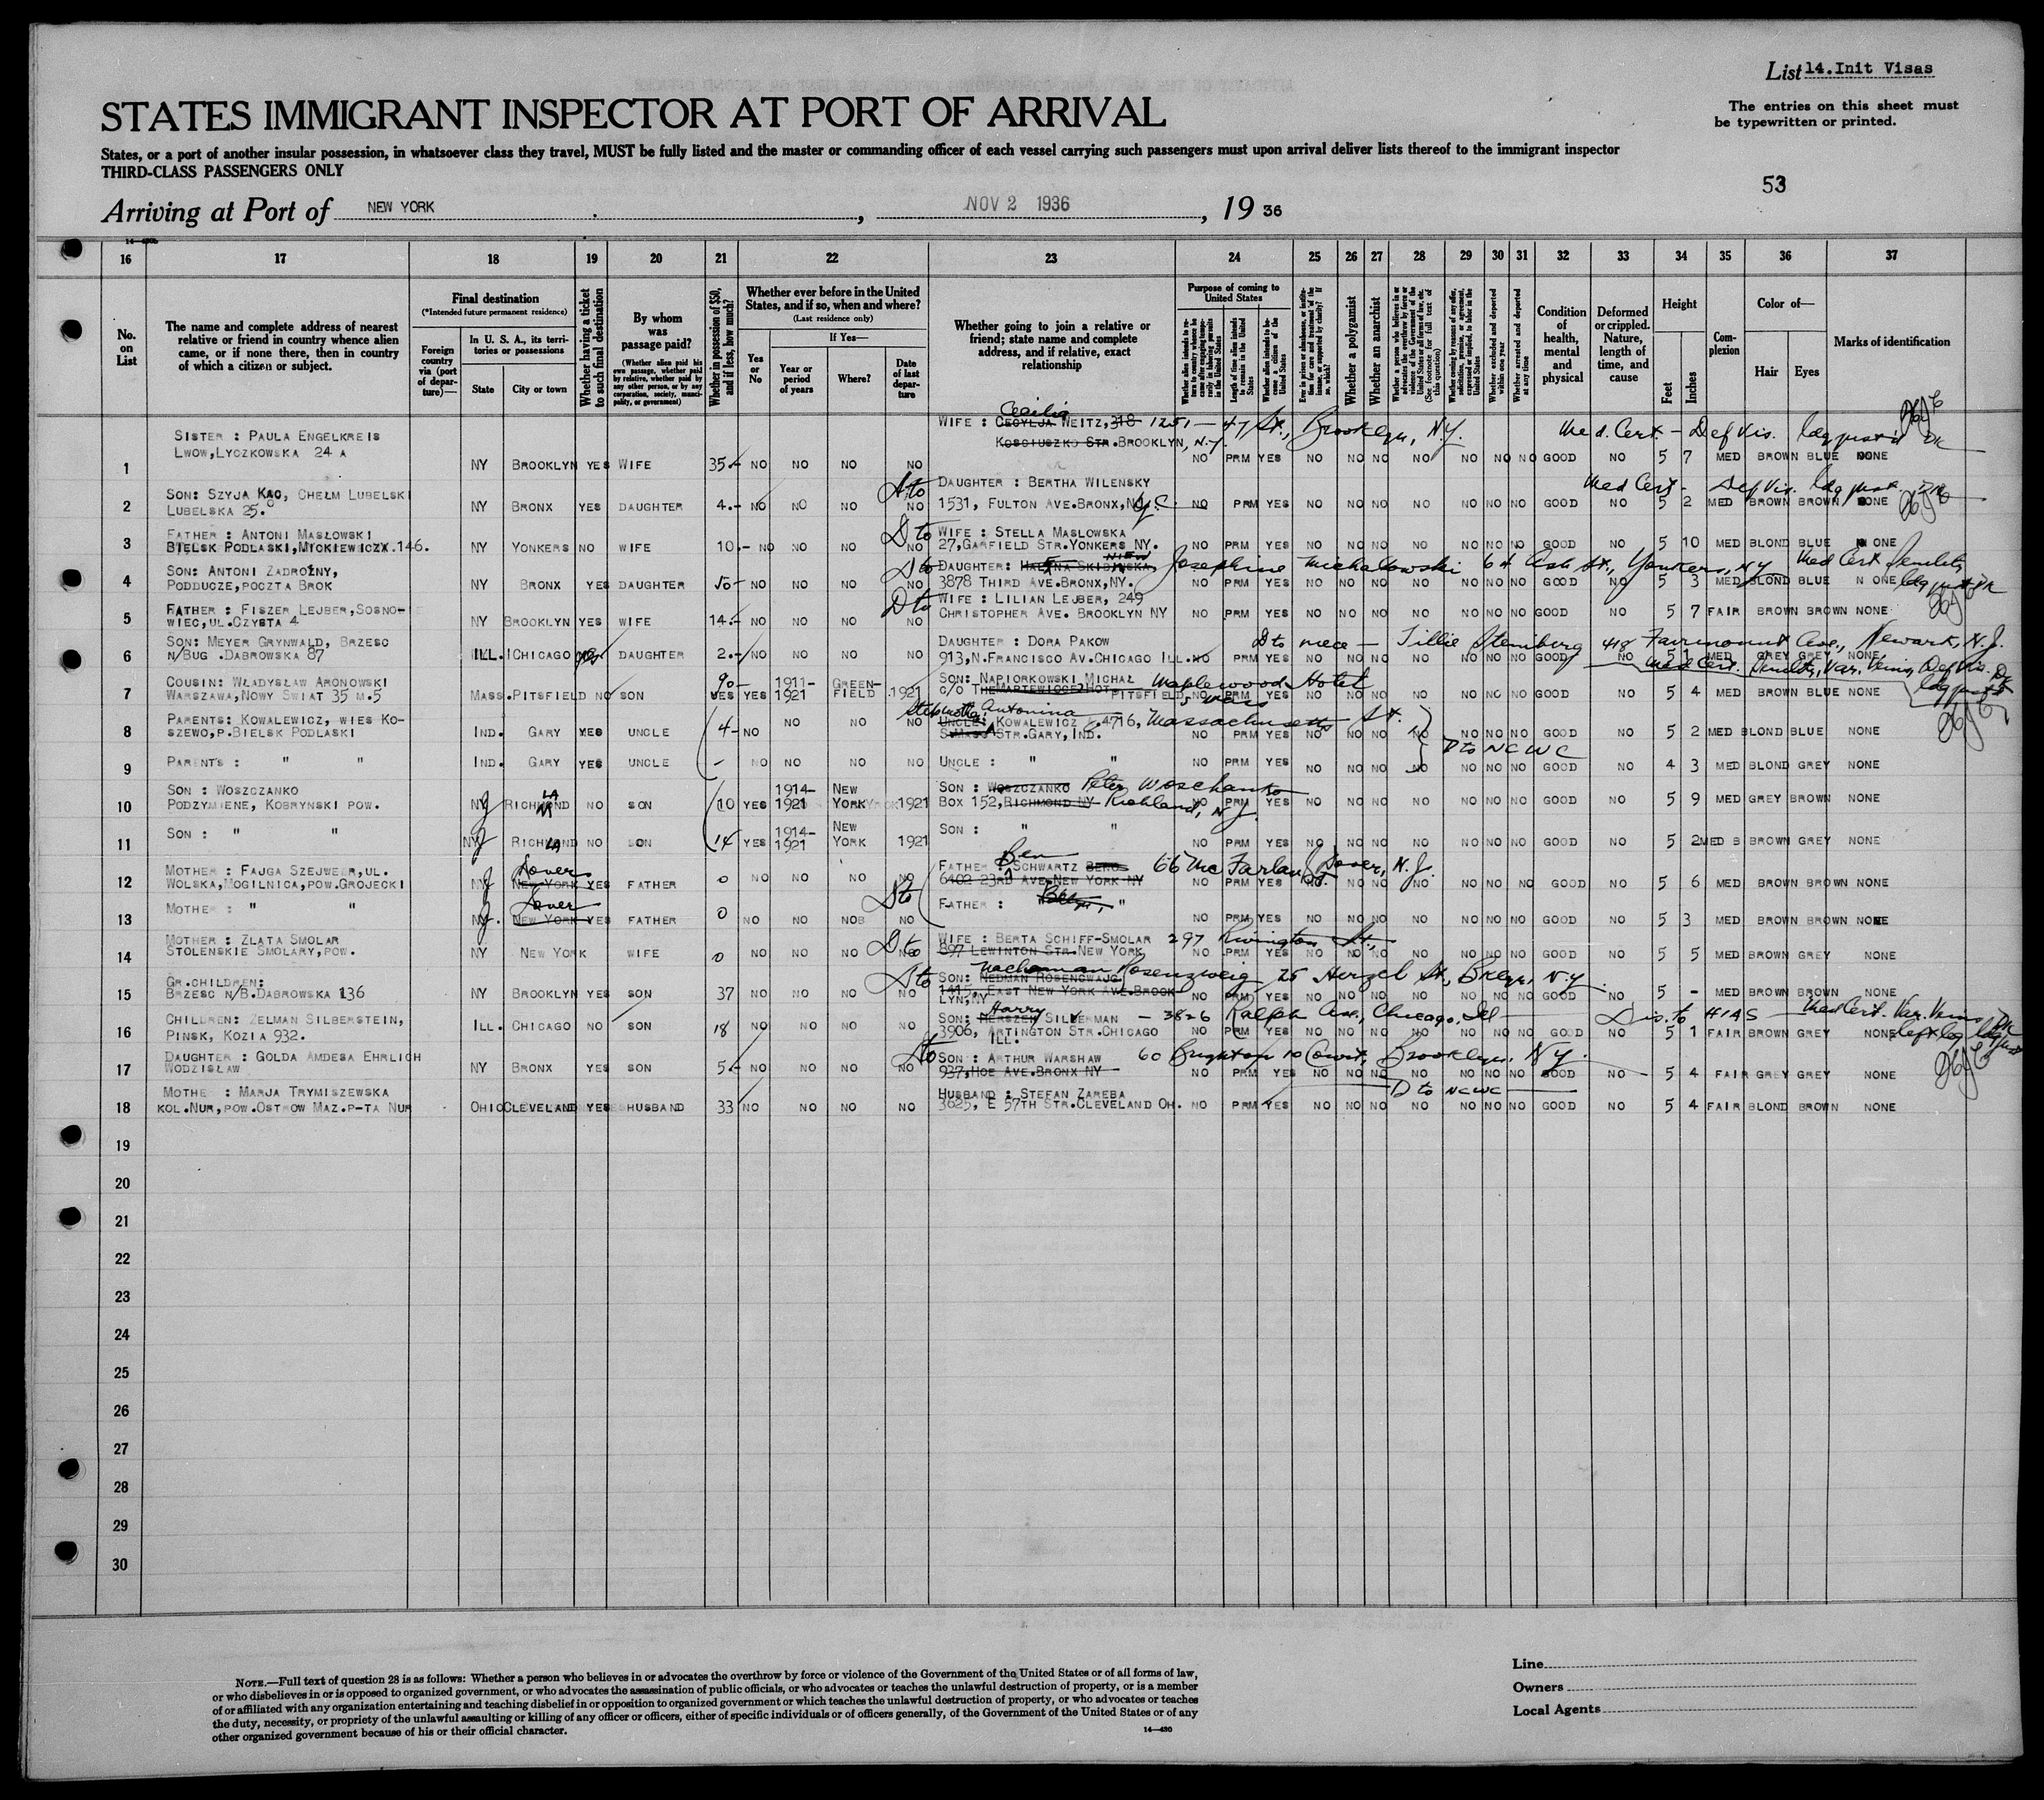 List 14.Init Visas
STATES IMMIGRANT INSPECTOR AT PORT OF ARRIVAL
The entries on this sheet must
be typewritten or printed.
States, or a port of another insular possession, in whatsoever class they travel, MUST be fully listed and the master or commanding officer of each vessel carrying such passengers must upon arrival deliver lists thereof to the immigrant inspector
THIRD-CLASS PASSENGERS ONLY
53
Arriving at Port of NEW YORK, NOV 2 1936, 19 36
16 17 18 19 20 21 22 23 24 25 26 27 28 29 30 31 32 33 34 35 36 37
No. on List
The name and complete address of nearest relative or friend in country whence alien came, or if none there, then in country of which a citizen or subject.
Final destination
(*Intended future permanent residence)
Foreign country via (port of departure)—
In U. S. A., its territories or possessions
State
City or town
Whether having a ticket to such final destination
By whom was passage paid?
(Whether alien paid his own passage, whether paid by relative, whether paid by any other person, or by any corporation, society, municipality, or government)
Whether in possession of $50, and if less, how much?
Whether ever before in the United States, and if so, when and where?
(Last residence only)
Yes or No
If Yes—
Year or period of years
Where?
Date of last departure
Whether going to join a relative or friend; state name and complete address, and if relative, exact relationship
Purpose of coming to United States
Whether a polygamist
Whether an anarchist
Whether excluded and deported within one year
Whether arrested and deported at any time
Condition of health, mental and physical
Deformed or crippled. Nature, length of time, and cause
Height
Feet
Inches
Complexion
Color of—
Hair
Eyes
Marks of identification
1 SISTER : PAULA ENGELKREIS
LWOW,LYCZKOWSKA 24 A
NY BROOKLYN YES WIFE 35.- NO NO NO NO
WIFE : CECYLJA Cecilia WEITZ, 318 1251 — 47 St., Brooklyn, N.Y.
KOSCIUSZKO STR.BROOKLYN, N.Y.
Med. Cert. - Def Vis.
NO PRM YES NO NO NO NO NO NO NO GOOD NO 5 7 MED BROWN BLUE NONE
2 SON: SZYJA KAC, CHEŁM LUBELSKI
LUBELSKA 25.
NY BRONX YES DAUGHTER 4.- NO NO NO NO
DAUGHTER : BERTHA WILENSKY
1531, FULTON AVE.BRONX,N.Y.C.
Med Cert - Def Vis.
NO PRM YES NO NO NO NO NO NO NO GOOD NO 5 2 MED BROWN BROWN NONE
3 FATHER : ANTONI MASŁOWSKI
BIELSK PODLASKI,MICKIEWICZA.146.
NY YONKERS NO WIFE 10.- NO NO NO NO
D to WIFE : STELLA MASLOWSKA
27,GARFIELD STR.YONKERS NY.
NO PRM YES NO NO NO NO NO NO NO GOOD NO 5 10 MED BLOND BLUE NONE
4 SON: ANTONI ZADROŻNY,
PODDUCZE,POCZTA BROK
NY BRONX YES DAUGHTER 50- NO NO NO NO
D to DAUGHTER: Josephine Michallowski 64 Ash St., Yonkers, NY Med Cert Senility
3878 THIRD AVE.BRONX,NY.
NO PRM YES NO NO NO NO NO NO NO GOOD NO 5 3 MED BLOND BLUE NONE
5 FATHER : FISZER LEJBER,SOSNO-
WIEC,UL.CZYSTA 4
NY BROOKLYN YES WIFE 14.- NO NO NO NO
D to WIFE : LILIAN LEJBER, 249
CHRISTOPHER AVE. BROOKLYN NY
NO PRM YES NO NO NO NO NO NO NO GOOD NO 5 7 FAIR BROWN BROWN NONE
6 SON: MEYER GRYNWALD, BRZESC
N/BUG .DABROWSKA 87
ILL. CHICAGO yes DAUGHTER 2.- NO NO NO NO
DAUGHTER : DORA PAKOW
913,N.FRANCISCO AV.CHICAGO ILL.
D to niece — Tillie Steinberg 418 Fairmount Ave., Newark, N.J.
NO PRM YES NO NO NO NO NO NO NO GOOD NO 5 1 MED GREY GREY NONE
Med Cert. Senility, Var. Veins, Def Vis.
7 COUSIN: WŁADYSŁAW ARONOWSKI
WARSZAWA,NOWY SWIAT 35 M.5
MASS. PITSFIELD NO SON 90- YES YES 1911-1921 GREENFIELD 1921
SON: NAPIORKOWSKI MICHAŁ Maplewood Hotel
C/O PITSFIELD, 5 years
NO PRM YES NO NO NO NO NO NO NO GOOD NO 5 4 MED BROWN BLUE NONE
8 PARENTS: KOWALEWICZ, WIES KO-
SZEWO,P.BIELSK PODLASKI
IND. GARY YES UNCLE 4- NO NO NO NO
Stepmother Antonina
UNCLE: KOWALEWICZ 4716, Massachusetts St.
S.MASS STR.GARY, IND.
NO PRM YES NO NO NO NO NO NO NO GOOD NO 5 2 MED BLOND BLUE NONE
D to NCWC
9 PARENTS : " "
IND. GARY YES UNCLE - NO NO NO NO
UNCLE : " "
NO PRM YES NO NO NO NO NO NO NO GOOD NO 4 3 MED BLOND GREY NONE
10 SON : WOSZCZANKO
PODZYMIENE, KOBRYNSKI POW.
NJ RICHLAND NO SON 10 YES 1914-1921 NEW YORK 1921
SON : WOSZCZANKO Peter Woschanko
BOX 152,RICHMOND NY Richland, N.J.
NO PRM YES NO NO NO NO NO NO NO GOOD NO 5 9 MED GREY BROWN NONE
11 SON : " "
NJ RICHLAND NO SON 14 YES 1914-1921 NEW YORK 1921
SON : " "
NO PRM YES NO NO NO NO NO NO NO GOOD NO 5 2 MED BROWN GREY NONE
12 MOTHER : FAJGA SZEJWEER,UL.
WOLSKA,MOGILNICA,POW.GROJECKI
NJ Dover NEW YORK YES FATHER 0 NO NO NO NO
FATHER Ben SCHWARTZ BERG 66 McFarlan St. Dover, N.J.
6402 23RD AVE.NEW YORK NY
NO PRM YES NO NO NO NO NO NO GOOD NO 5 6 MED BROWN BROWN NONE
13 MOTHER : " "
NJ. Dover NEW YORK YES FATHER 0 NO NO NO NO
FATHER : "
NO PRM YES NO NO NO NO NO NO NO GOOD NO 5 3 MED BROWN BROWN NONE
14 MOTHER : ZLATA SMOLAR
STOLENSKIE SMOLARY,POW.
NY NEW YORK WIFE 0 NO NO NO NO
D to WIFE : BERTA SCHIFF-SMOLAR 297 Rivington St.,
897 LEWINTON STR.NEW YORK
NO PRM YES NO NO NO NO NO NO NO GOOD NO 5 5 MED BROWN GREY NONE
15 GR.CHILDREN:
BRZESC N/B.DABROWSKA 136
NY BROOKLYN YES SON 37 NO NO NO NO
SON: Nachaman Rosenzweig 25 Herzel St., Bklyn, N.Y.
NEDMAN ROSENCWAJG
1415, EAST NEW YORK AVE.BROOK-
LYN,NY
NO PRM YES NO NO NO NO NO NO NO GOOD NO 5 - MED BROWN BROWN NONE
16 CHILDREN: ZELMAN SILBERSTEIN,
PINSK, KOZIA 932.
ILL. CHICAGO NO SON 18 NO NO NO NO
SON: Harry HERSZEN SILVERMAN — 3826 Ralph Ave., Chicago, Ill
3906, ARTINGTON STR.CHICAGO
ILL.
Dis. to HIAS Med Cert. Var. Veins
NO PRM YES NO NO NO NO NO NO NO GOOD NO 5 1 FAIR BROWN GREY NONE
17 DAUGHTER : GOLDA AMDESA EHRLICH
WODZISŁAW
NY BRONX YES SON 5.- NO NO NO NO
SON : ARTHUR WARSHAW 60 Brighton 10 Court, Brooklyn, N.Y.
937,HOE AVE.BRONX NY
NO PRM YES NO NO NO NO NO NO NO GOOD NO 5 4 FAIR GREY GREY NONE
D to NCWC
18 MOTHE : MARJA TRYMISZEWSKA
KOL.NUR,POW.OSTROW MAZ.P-TA NUR
OHIO CLEVELAND YES HUSBAND 33 NO NO NO NO
HUSBAND : STEFAN ZAREBA
3625, E 57TH STR.CLEVELAND OH.
NO PRM YES NO NO NO NO NO NO NO GOOD NO 5 4 FAIR BLOND BROWN NONE
19
20
21
22
23
24
25
26
27
28
29
30
NOTE.—Full text of question 28 is as follows: Whether a person who believes in or advocates the overthrow by force or violence of the Government of the United States or of all forms of law,
or who disbelieves in or is opposed to organized government, or who advocates the assassination of public officials, or who advocates or teaches the unlawful destruction of property, or is a member
of or affiliated with any organization entertaining and teaching disbelief in or opposition to organized government or which teaches the unlawful destruction of property, or who advocates or teaches
the duty, necessity, or propriety of the unlawful assaulting or killing of any officer or officers, either of specific individuals or of officers generally, of the Government of the United States or of any
other organized government because of his or their official character.
14—430
Line
Owners
Local Agents